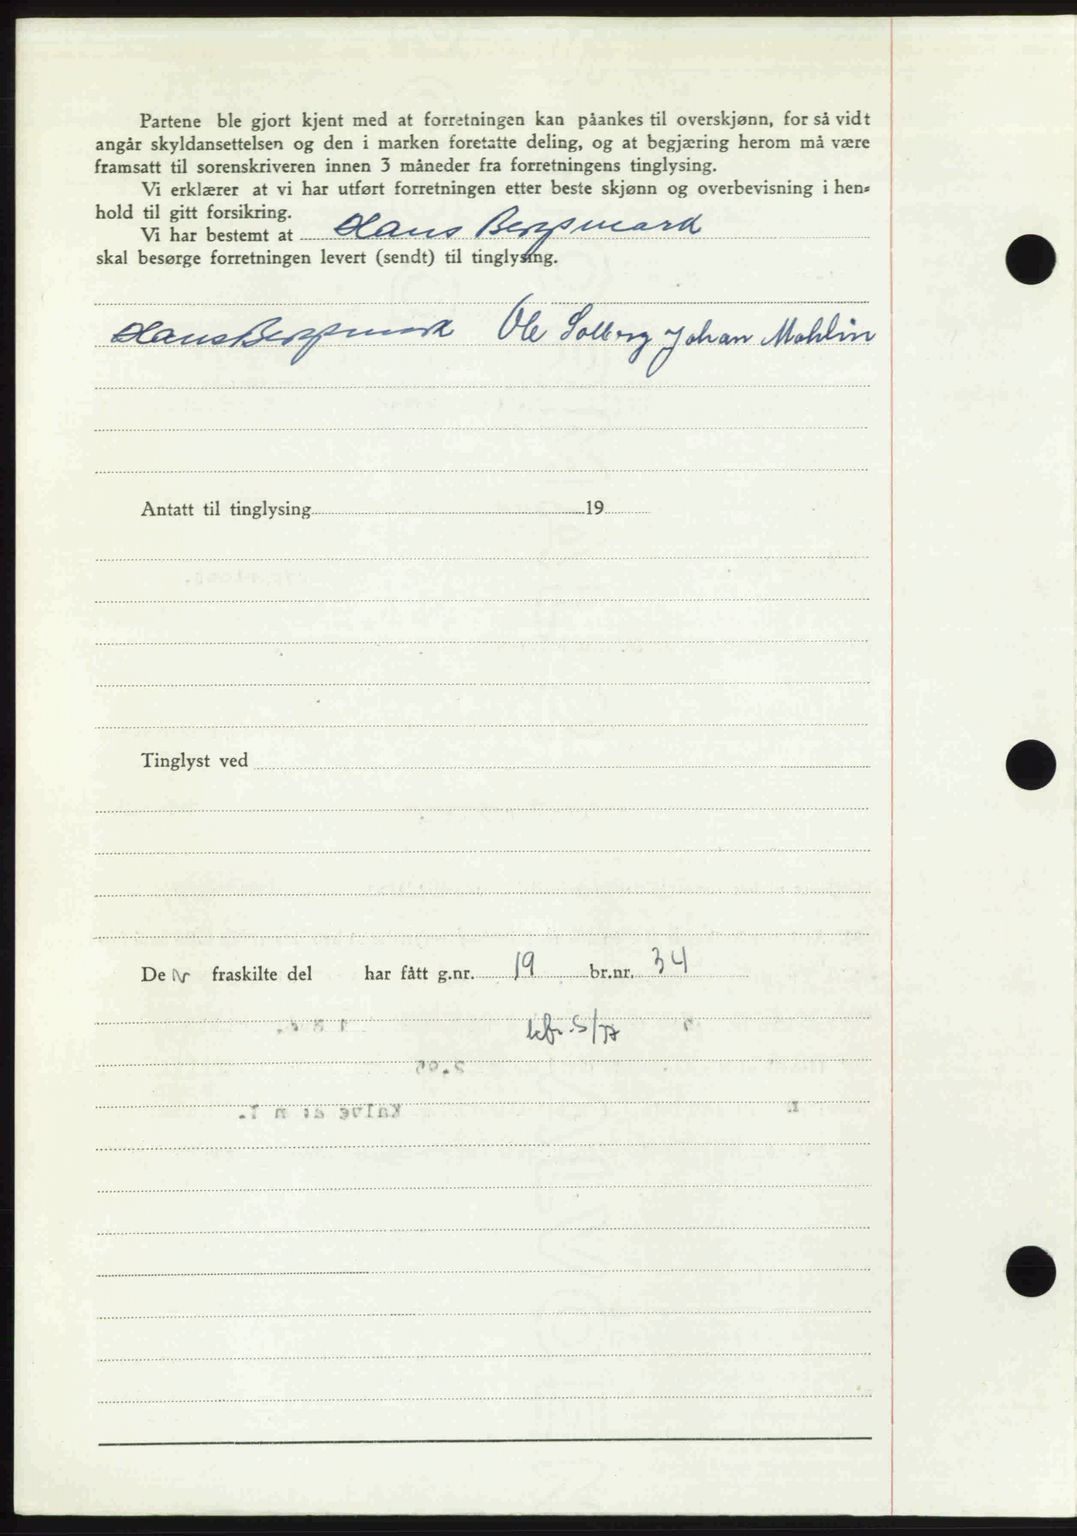 Partene ble gjort kjent med at forretningen kan påankes til overskjønn, for så vidt
angår skyldansettelsen og den i marken foretatte deling, og at begjæring herom må være
framsatt til sorenskriveren innen 3 måneder fra forretningens tinglysing.
Vi erklærer at vi har utført forretningen etter beste skjønn og overbevisning i hen-
hold til gitt forsikring.
Vi har bestemt at Hans Bergsmark
skal besørge forretningen levert (sendt) til tinglysing.
Hans Bergsmark Ole Solberg Johan Mohlin
Antatt til tinglysing 19
Tinglyst ved
De fraskilte del har fått g.nr. 19 br.nr. 34